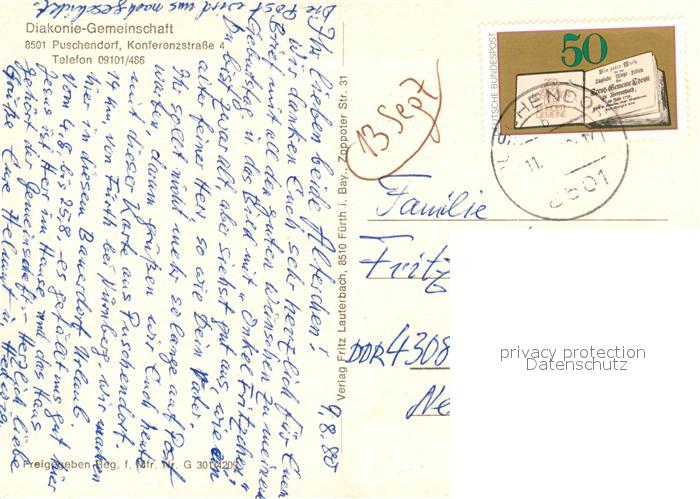 Diakonie-Gemeinschaft
8501 Puschendorf, Konferenzstraße 4
Telefon 09101/486
9.8.80
Ihr lieben beide Alterchen!
Wir danken Euch sehr herzlich für Euren
Brief mit all den guten Wünschen zu meinem
Geburtstag u. das Bild mit "Onkel Fritzchen"
Du bist zwar alt, aber siehst gut aus, wie ein
alter feiner Herr so wie Dein Vater.
Ihr sollt nicht mehr so lange auf Post
warten, darum grüßen wir Euch heute
mit dieser Karte aus Puschendorf.
17 km von Fürth bei Nürnberg. Wir machen
hier in diesem Bauerndorf Urlaub.
Vom 4.8 bis 25.8. es gefällt uns gut hier
Jesus ist Herr im Hause, und das Haus
gehört der Gemeinschaft. - Herzlich liebe
Grüße Eure Helmut u. Hedwig
Die Post wird uns nachgeschickt.
Freigegeben Reg. f. Mfr. Nr. G 301/4209
Verlag Fritz Lauterbach, 8510 Fürth i. Bay., Zoppoter Str. 31
13 Sept
DEUTSCHE BUNDESPOST
50
GEMEINE
PUSCHENDORF
11.
8501
Familie
Fritz
DDR 4308
Ne
privacy protection
Datenschutz